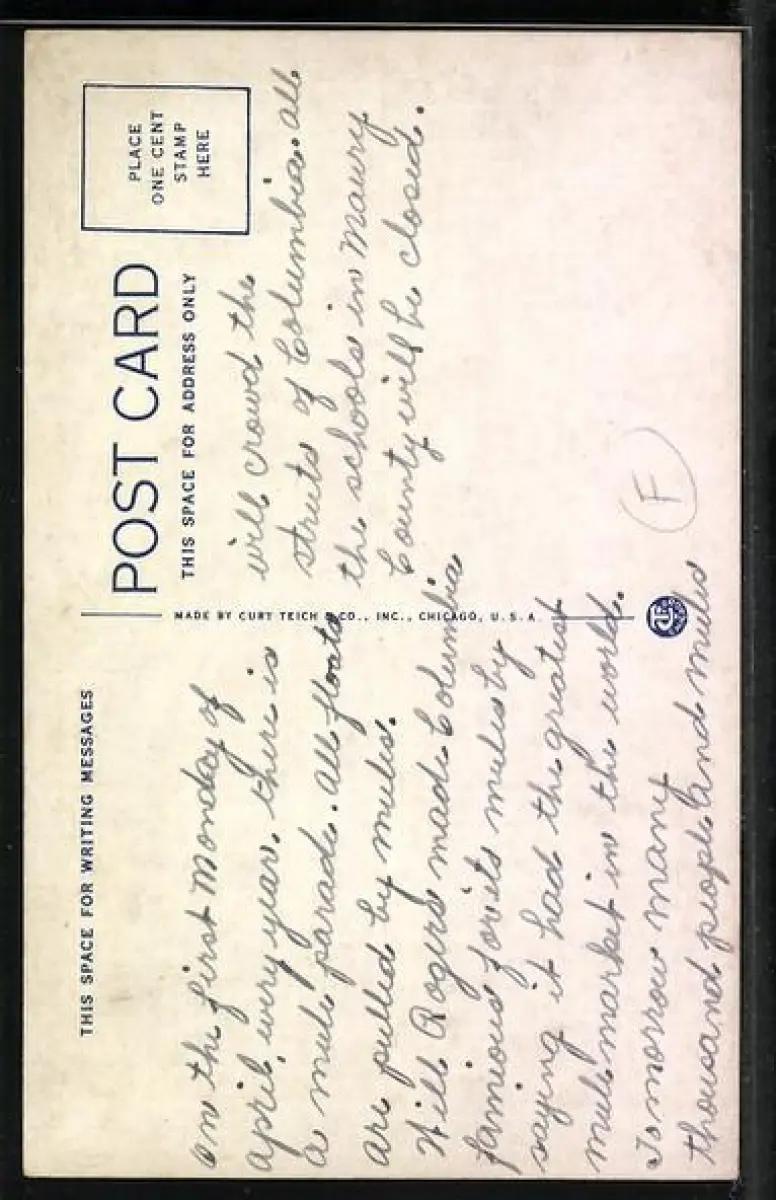 THIS SPACE FOR WRITING MESSAGES
On the first Monday of
April, every year, there is
a mule parade. All floats
are pulled by mules.
Will Rogers made Columbia
famious for its mules by
saying it had the greatest
mule market in the world.
Tomorrow many
thousand people and mules
POST CARD
THIS SPACE FOR ADDRESS ONLY
PLACE
ONE CENT
STAMP
HERE
will crowd the
streets of Columbia. All
the schools in Maury
County will be closed.
MADE BY CURT TEICH & CO., INC., CHICAGO, U.S.A.
F